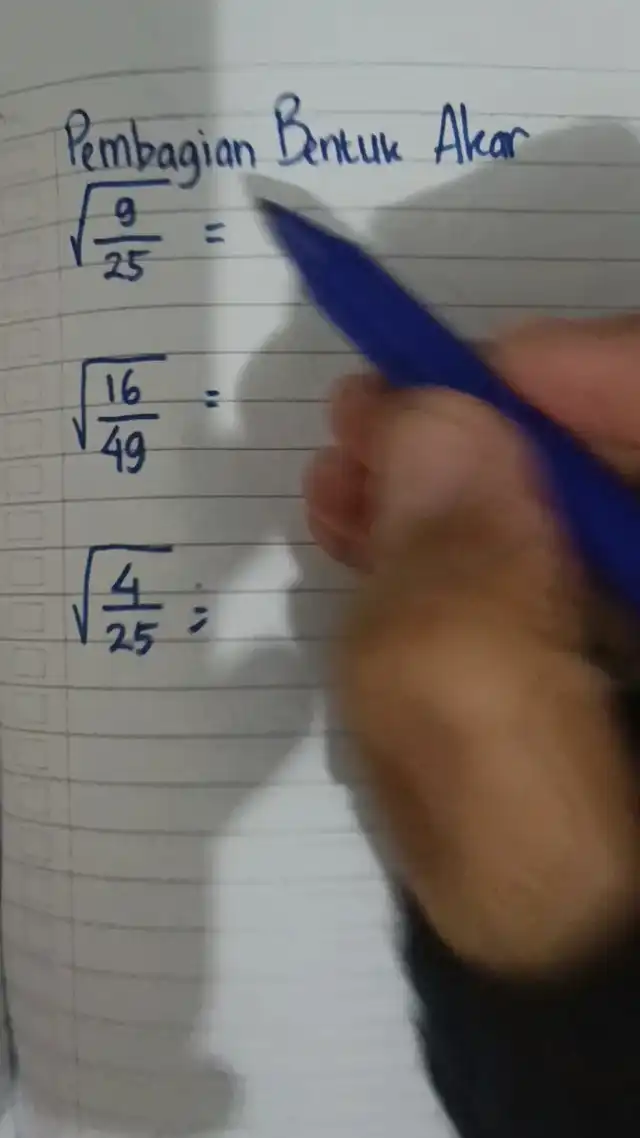 Pembagian Bentuk Akar
√9/25 =
√16/49 =
√4/25 =